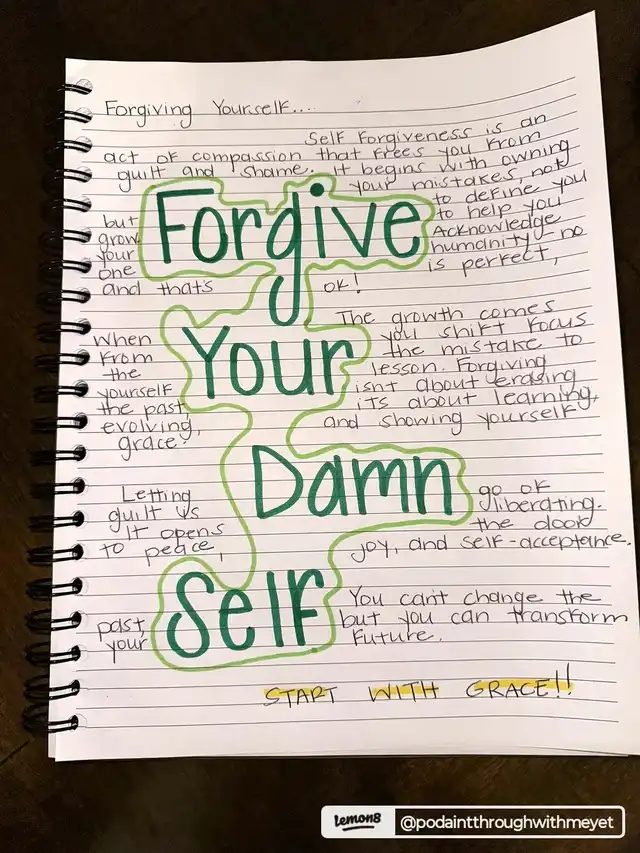 Forgiving Yourself...
Self Forgiveness is an
act of compassion that frees you from
guilt and shame. It begins with owning
your mistakes, not
to define you
but to help you
grow. Acknowledge
your humanity - no
one is perfect,
and that's ok!
Forgive
The growth comes
When you shift focus
from the mistake to
the lesson. Forgiving
yourself isn't about erasing
the past, its about learning,
evolving, and showing yourself
grace.
Your
Damn
Letting go of
guilt is liberating.
It opens the door
to peace, joy, and self-acceptance.
Self
You can't change the
past, but you can transform
your future.
START WITH GRACE!!
Lemon8 @podaintthroughwithmeyet